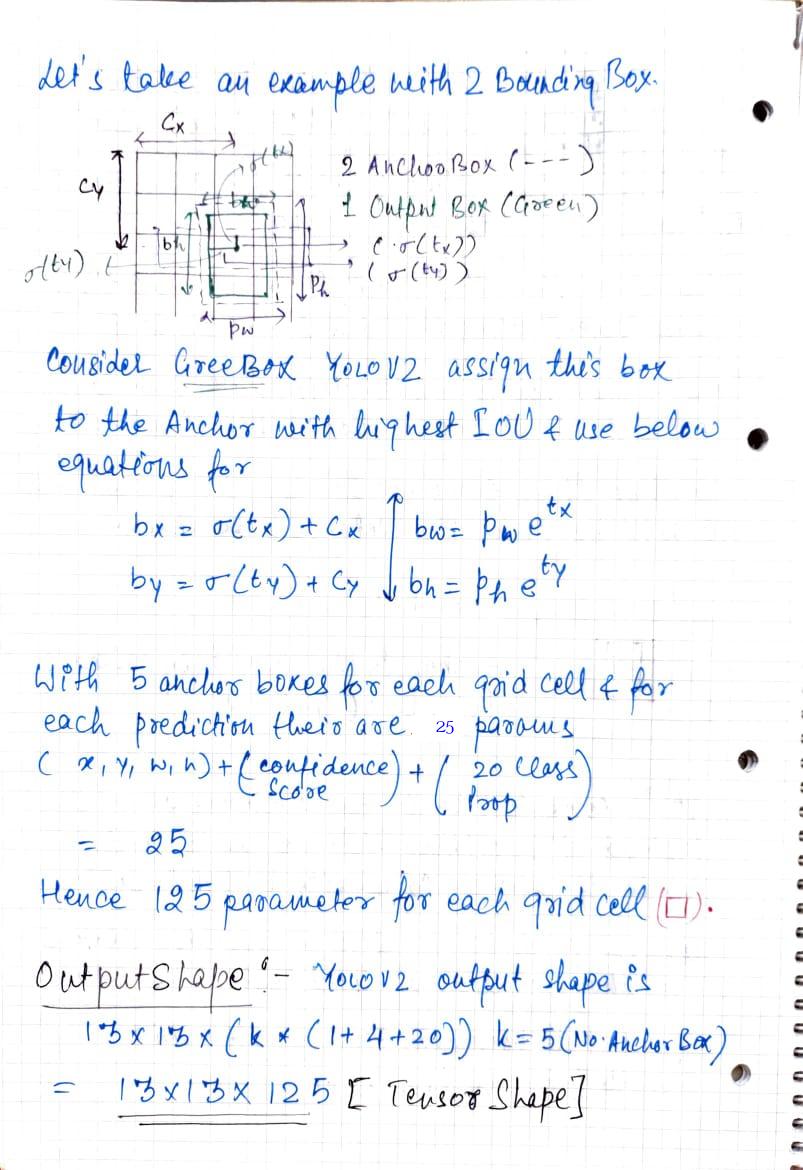 Let's take an example with 2 Bounding Box.
Cx
σ(tx)
Cy
bw
bh
σ(ty)
Ph
Pw
2 Anchor Box (---)
1 Output Box (Green)
(·σ(tx))
(σ(ty))
Consider GreeBox YOLO V2 assign this box
to the Anchor with highest IOU & use below
equations for
bx = σ(tx) + Cx bw = Pw e^tx
by = σ(ty) + Cy bh = Ph e^ty
With 5 anchor boxes for each grid cell & for
each prediction their are 25 params
( x, y, w, h) + (confidence Score) + ( 20 Class Prop )
= 25
Hence 125 parameter for each grid cell (□).
Output Shape :- YOLO V2 output shape is
13 x 13 x (k * (1+4+20)) k=5 (No. Anchor Box)
= 13 x 13 x 125 [Tensor Shape]